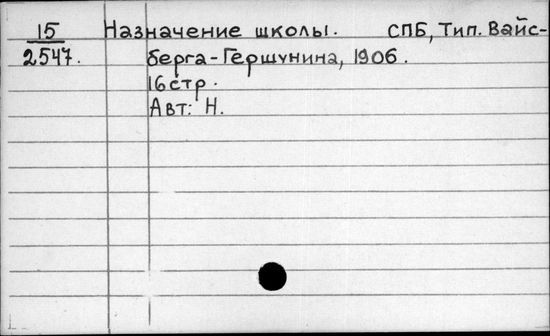 15 Назначение школы. СПБ, Тип. Вайс-
2547. берга-Гершунина, 1906.
16стр.
Авт: Н.